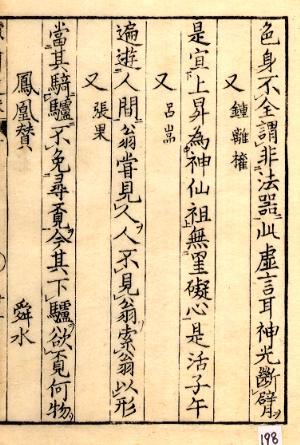 色身不全謂非法器此虛言耳神光斷臂
又 鍾離權
是宜上昇為神仙祖無罣礙心是活子午
又 呂喦
遍遊人間翁嘗見人人不見翁索翁以形
又 張果
當其騎驢不免尋覔今其下驢欲覔何物
鳳凰賛 舜水
198